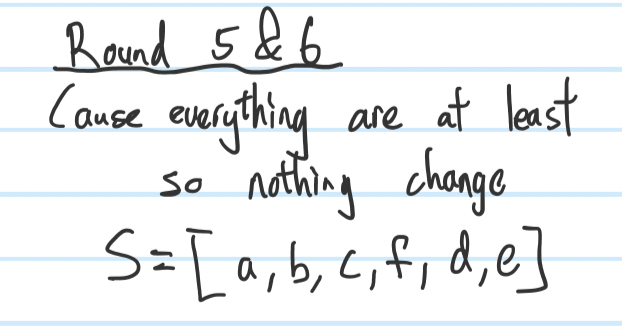 Round 5 & 6
Cause everything are at least
so nothing change
S=[a,b,c,f,d,e]